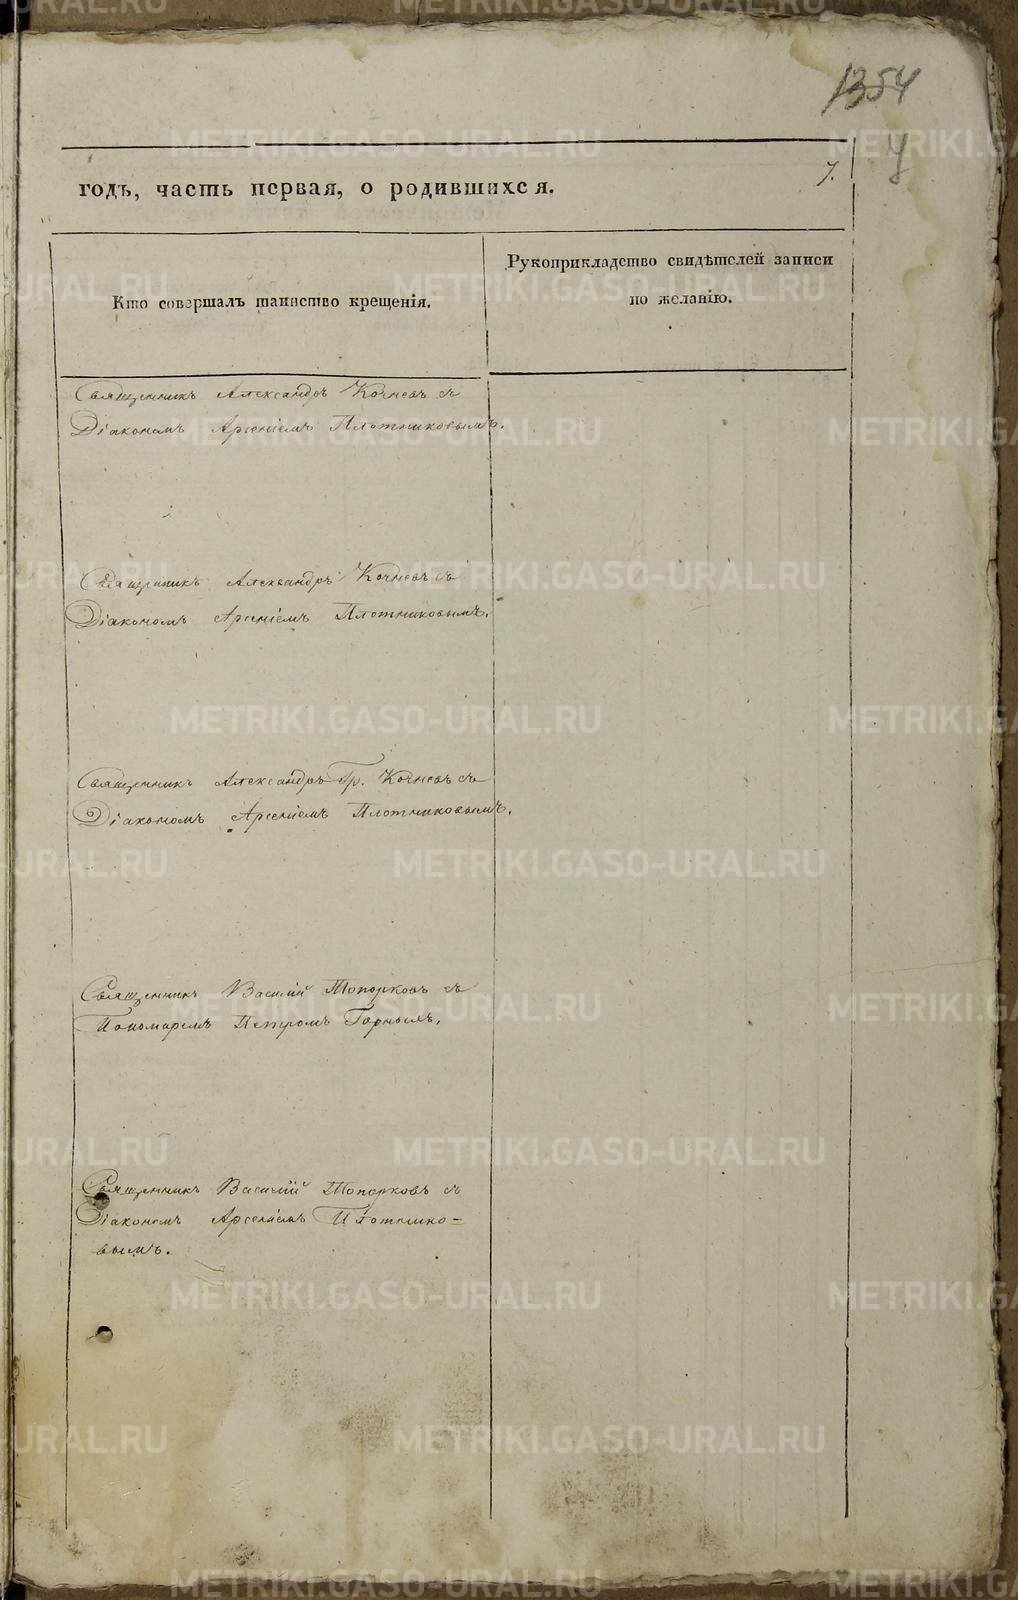 1354
7.
годъ, часть первая, о родившихся.
Кто совершалъ таинство крещенія.
Рукоприкладство свидѣтелей записи
по желанію.
Священникъ Александръ Кочневъ съ
Діакономъ Арсеніемъ Плотниковымъ.
Священникъ Александръ Кочневъ съ
Діакономъ Арсеніемъ Плотниковымъ.
Священникъ Александръ Гр. Кочневъ съ
Діакономъ Арсеніемъ Плотниковымъ.
Священникъ Василій Топорковъ съ
Пономаремъ Петромъ Горныхъ.
Священникъ Василій Топорковъ съ
Діакономъ Арсеніемъ Плотнико=
вымъ.
METRIKI.GASO-URAL.RU